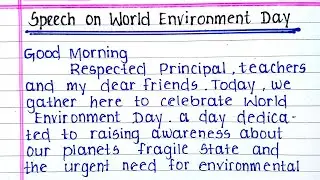 Speech on World Environment Day
Good Morning
Respected Principal, teachers
and my dear friends. Today, we
gather here to celebrate World
Environment Day. a day dedica-
ted to raising awareness about
our planets fragile state and
the urgent need for environmental